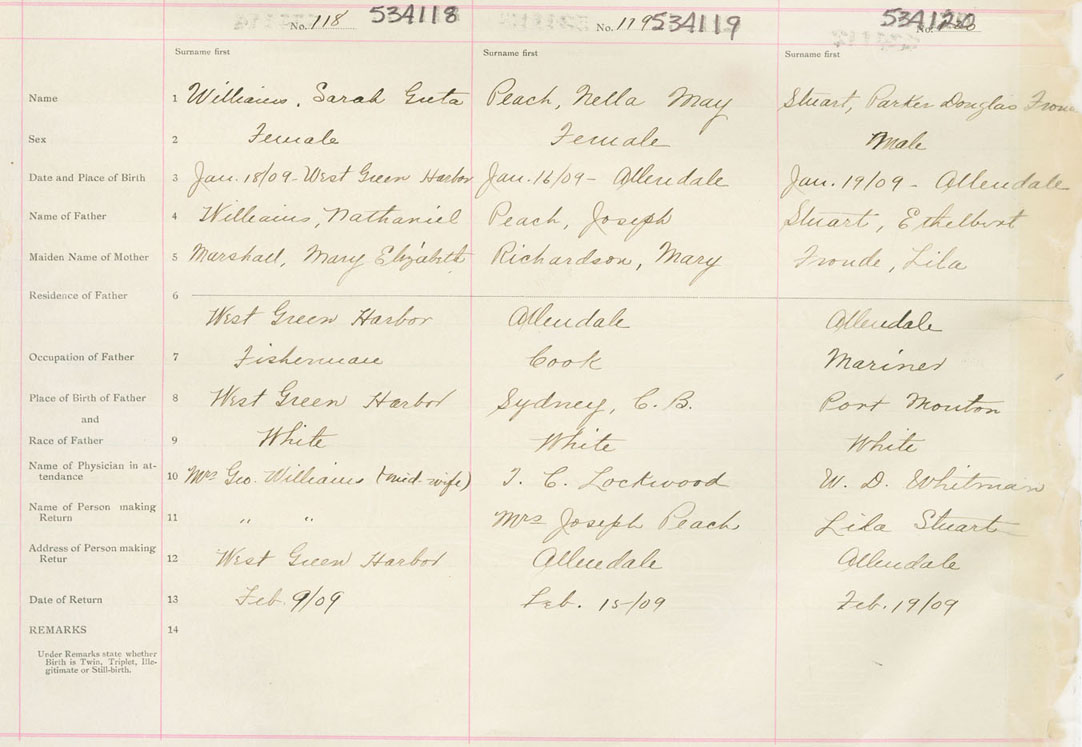 No. 118 534118 No. 119 534119 534120 No. 120
Surname first Surname first Surname first
Name 1 Williams, Sarah Greta Peach, Nella May Stuart, Parker Douglas Froude
Sex 2 Female Female Male
Date and Place of Birth 3 Jan. 18/09 - West Green Harbor Jan. 16/09 - Allendale Jan. 19/09 - Allendale
Name of Father 4 Williams, Nathaniel Peach, Joseph Stuart, Ethelbert
Maiden Name of Mother 5 Marshall, Mary Elizabeth Richardson, Mary Froude, Lila
Residence of Father 6
West Green Harbor Allendale Allendale
Occupation of Father 7 Fisherman Cook Mariner
Place of Birth of Father 8 West Green Harbor Sydney, C. B. Port Mouton
and
Race of Father 9 White White White
Name of Physician in at-
tendance 10 Mrs Geo. Williams (mid-wife) T. C. Lockwood W. D. Whitman
Name of Person making
Return 11 " " Mrs Joseph Peach Lila Stuart
Address of Person making
Retur 12 West Green Harbor Allendale Allendale
Date of Return 13 Feb. 9/09 Feb. 15/09 Feb. 19/09
REMARKS 14
Under Remarks state whether
Birth is Twin, Triplet, Ille-
gitimate or Still-birth.